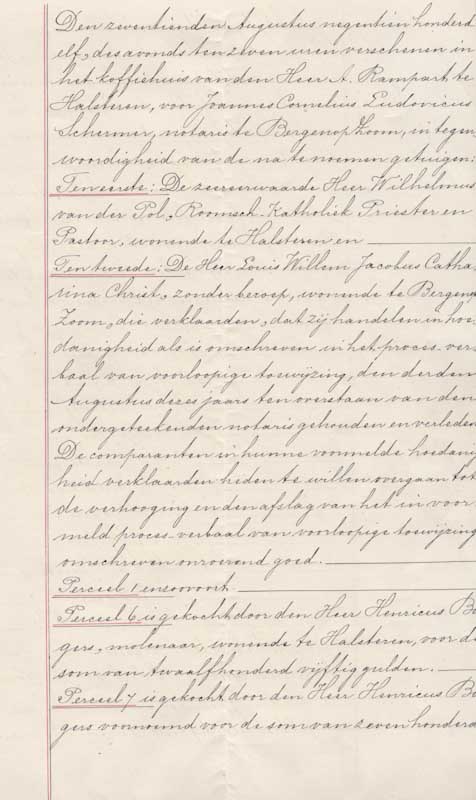 Den zeventienden Augustus negentien honderd
elf, des avonds ten zeven uren verschenen in
het koffiehuis van den Heer A. Rampart te
Halsteren, voor Joannes Cornelius Ludovicus
Schermer, notaris te Bergen op Zoom, in tegen
woordigheid van de na te noemen getuigen:
Ten eerste: De zeereerwaarde Heer Wilhelmus
van der Pol, Roomsch-Katholiek Priester en
Pastoor, wonende te Halsteren en
Ten tweede: De Heer Louis Willem Jacobus Catha-
rina Christ, zonder beroep, wonende te Bergen op
Zoom, die verklaarden, dat zij handelen in hoe
danigheid als is omschreven in het proces-ver
baal van voorloopige toewijzing, den derden
Augustus dezes jaars ten overstaan van den
ondergeteekenden notaris gehouden en verleden
De comparanten in hunne voormelde hoedanig
heid verklaarden heden te willen overgaan tot
de verhooging en den afslag van het in voor
meld proces-verbaal van voorloopige toewijzing
omschreven onroerend goed.
Perceel 1 enzoovoort
Perceel 6 is gekocht door den Heer Henricus Be
gers, molenaar, wonende te Halsteren, voor de
som van twaalfhonderd vijftig gulden.
Perceel 7 is gekocht door den Heer Henricus Be
gers voornoemd voor de som van zeven honderd